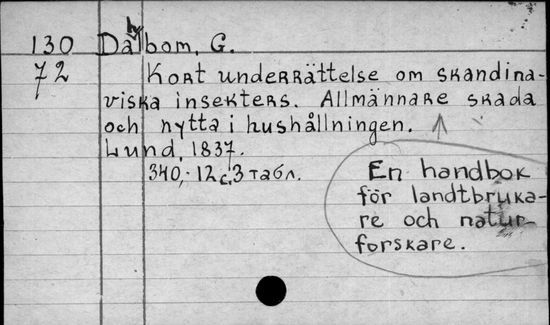 130 Dahlbom, G.
72 Kort underrättelse om skandina-
viska insekters. Allmännare skada
och nytta i hushållningen.
Lund, 1837.
340,- 12 с, 3 табл.
En handbok
för landtbruka-
re och natur-
forskare.